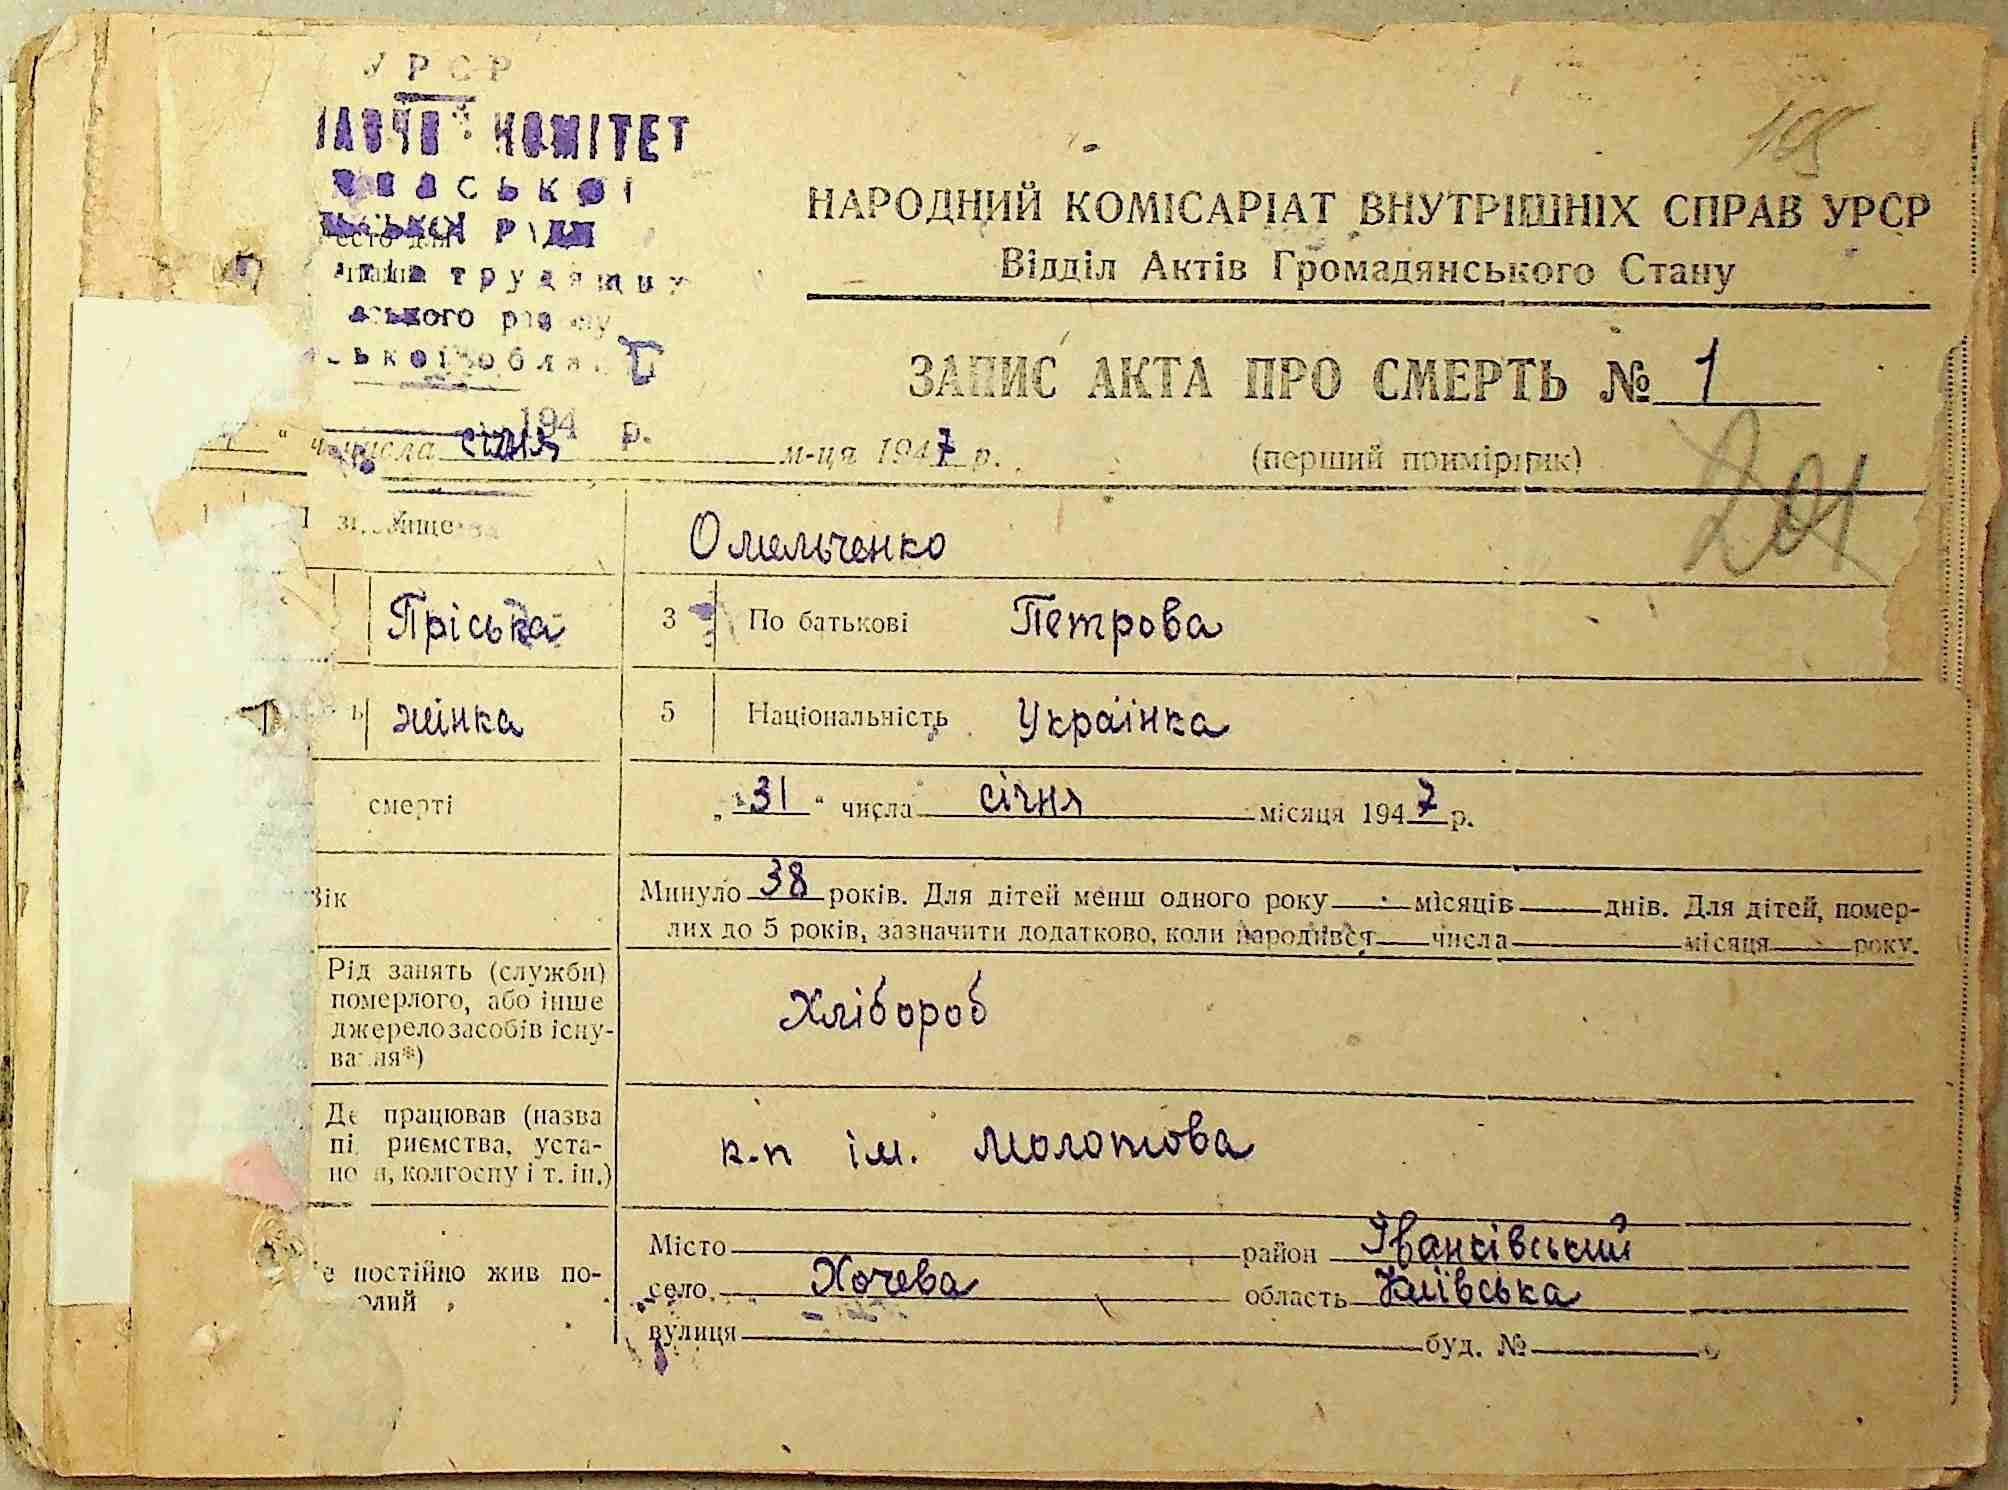 УРСР
КОМІТЕТ
трудящих
194 р.
195
НАРОДНИЙ КОМІСАРІАТ ВНУТРІШНІХ СПРАВ УРСР
Відділ Актів Громадянського Стану
ЗАПИС АКТА ПРО СМЕРТЬ № 1
числа січня м-ця 1947 р. (перший примірник)
201
Омельченко
Пріська 3 По батькові Петрова
жінка 5 Національність Українка
смерті „31“ числа січня місяця 1947 р.
Вік Минуло 38 років. Для дітей менш одного року місяців днів. Для дітей, помер-
лих до 5 років, зазначити додатково, коли народився числа місяця року.
Рід занять (служби)
померлого, або інше
джерело засобів існу-
вання*)
Хлібороб
Де працював (назва
риємства, уста-
колгоспу і т. ін.)
к-п ім. Молотова
постійно жив по-
Місто район Іванківський
село Хочева область Київська
вулиця буд. №